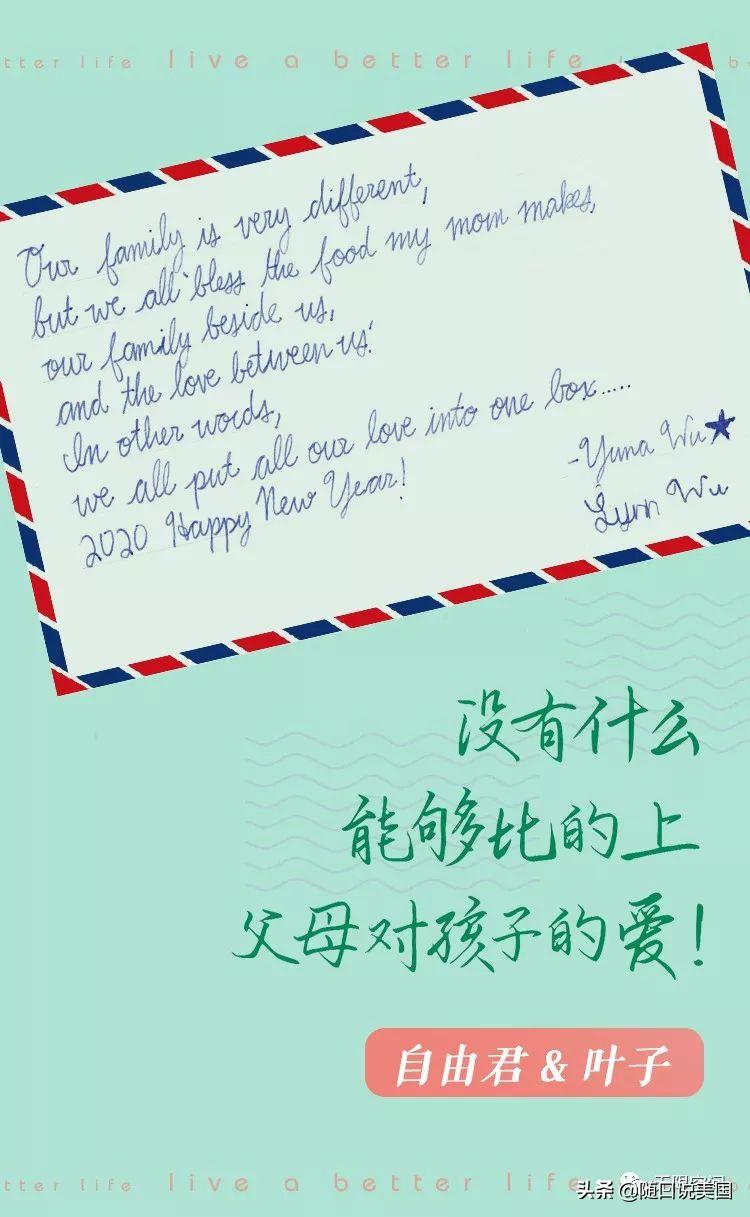 tter life live a better life
Our family is very different,
but we all bless the food my mom makes,
our family beside us,
and the love between us.
In other words,
we all put all our love into one box.....
2020 Happy New Year!
-Yuna Wu
Lynn Wu
没有什么
能够比的上
父母对孩子的爱!
自由君 & 叶子
tter life live a better life
头条 @随口说美国